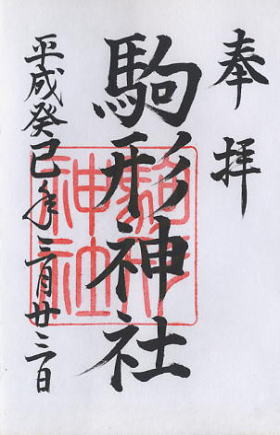 奉拝
駒形神社
平成癸巳年三月廿三日
駒形
神社